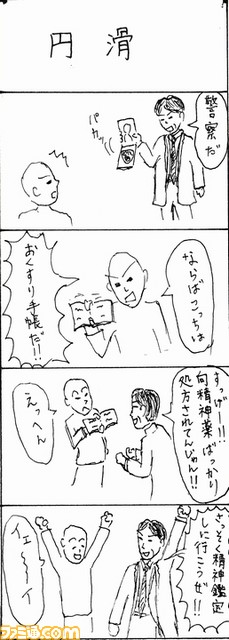 円滑
警察だ
パカッ
ならばこっちは
おくすり手帳だ!!
すっげー!!!
向精神薬ばっかり
処方されてんじゃん!!
えっへん
さっそく精神鑑定
しに行こうぜ!!
イェ〜〜イ
ファミ通.com